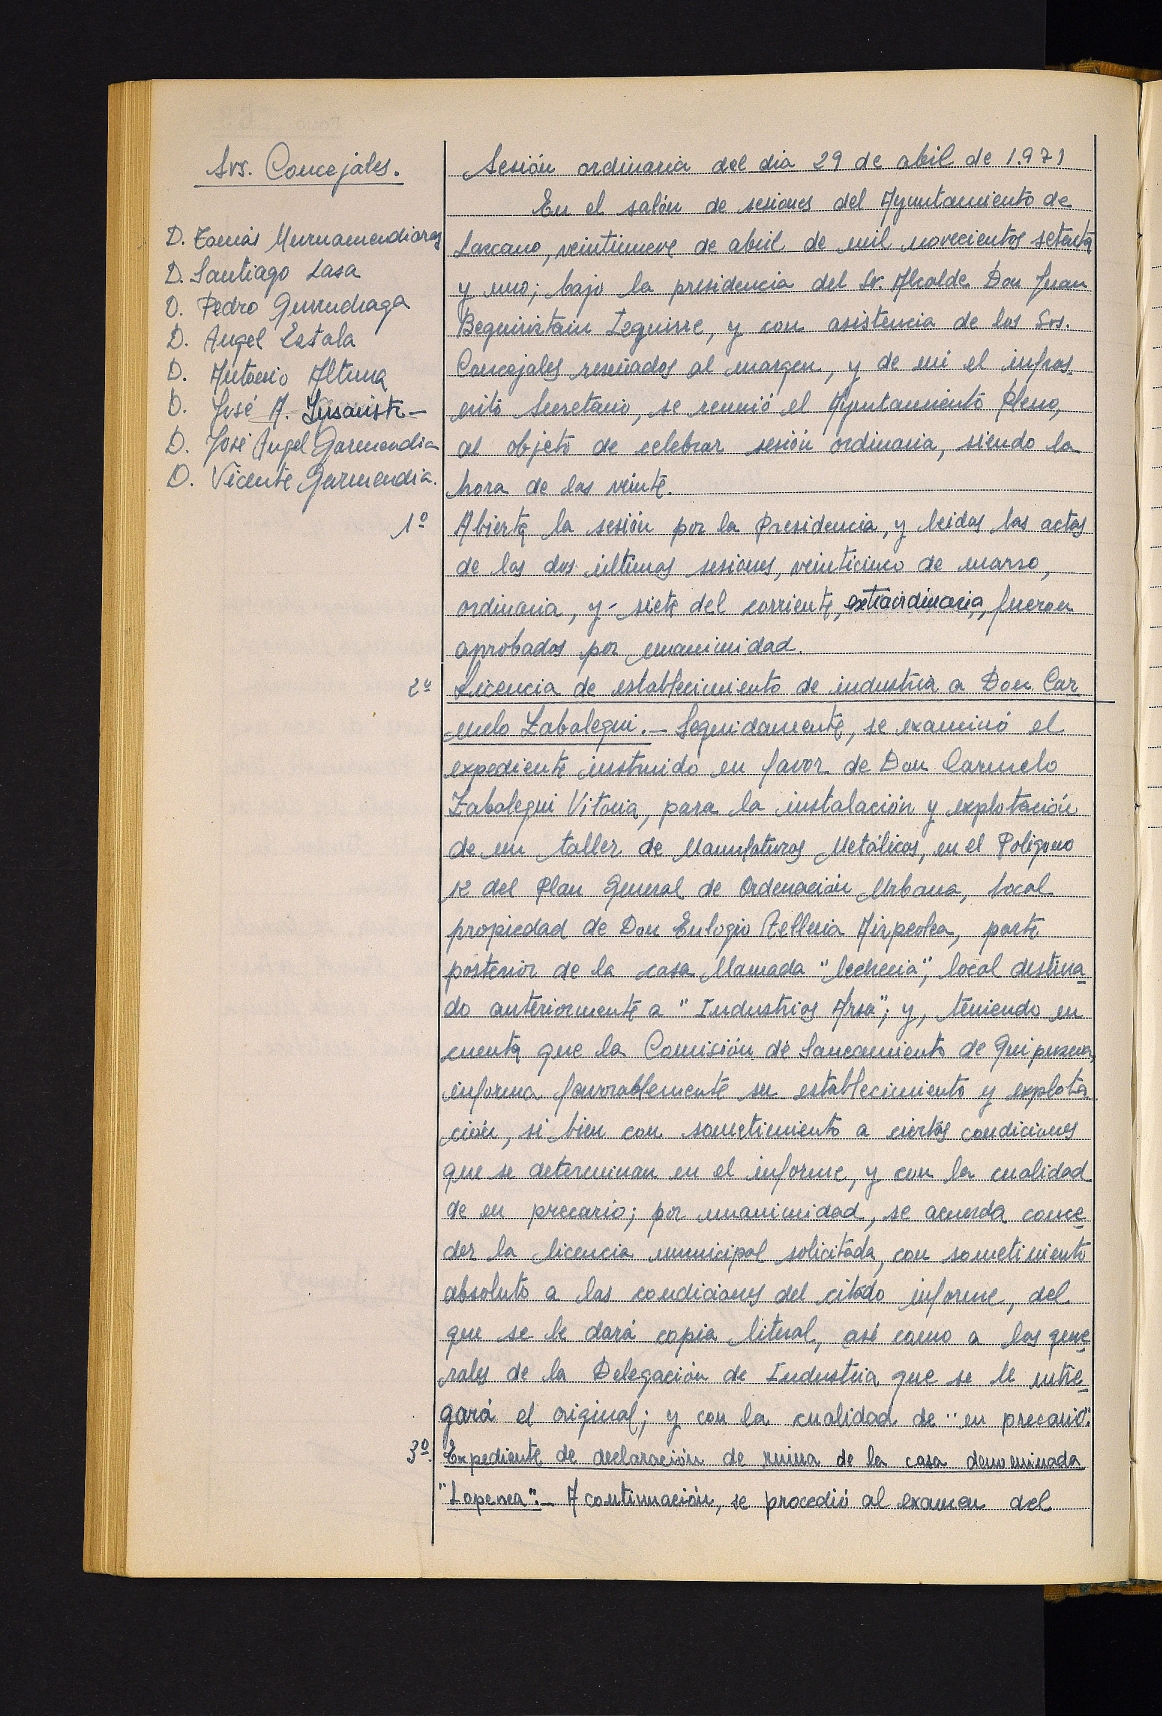 Srs. Concejales.
D. Tomás Murnamendiaraz
D. Santiago Lasa
D. Pedro Gurruchaga
D. Angel Estala
D. Antonio Altuna
D. José A. Insausti -
D. José Angel Garmendia
D. Vicente Garmendia.
Sesión ordinaria del dia 29 de abil de 1.971
En el salón de sesiones del Ayuntamiento de
Lazcano, veintinueve de abril de mil novecientos setenta
y uno; bajo la presidencia del Sr. Alcalde Don Juan
Beguiristain Izaguirre, y con asistencia de los Srs.
Concejales reseñados al margen, y de mi el infras-
crito Secretario, se reunió el Ayuntamiento Pleno,
al objeto de celebrar sesión ordinaria, siendo la
hora de las veinte.
1º Abierta la sesión por la Presidencia, y leidas las actas
de las dos últimas sesiones, veinticinco de marzo,
ordinaria, y - siete del corriente, extraordinaria, fueron
aprobados por unanimidad.
2º Licencia de establecimiento de industria a Don Car-
melo Zabalegui. - Seguidamente, se examinó el
expediente instruido en favor de Don Carmelo
Zabalegui Vitoria, para la instalación y explotación
de un taller de Manufaturas Metálicas, en el Poligono
12 del Plan General de Ordenación Urbana, local
propiedad de Don Eulogio Telleria Airpeolea, parte
posterior de la casa llamada "lecheria", local destina-
do anteriormente a "Industrias Arsa"; y, teniendo en
cuenta que la Comisión de Saneamiento de Guipuzcoa,
informa favorablemente su establecimiento y explota-
ción, si bien con sometimiento a ciertas condiciones
que se determinan en el informe, y con la cualidad
de en precario; por unanimidad, se acuerda conce-
der la licencia municipal solicitada, con sometimiento
absoluto a las condiciones del citado informe, del
que se le dará copia literal, asi como a las gene-
rales de la Delegación de Industria que se le entre-
gará el original; y con la cualidad de "en precario".
3º. Expediente de declaración de ruina de la casa denominada
"Lapenea". - A continuación, se procedió al examen del